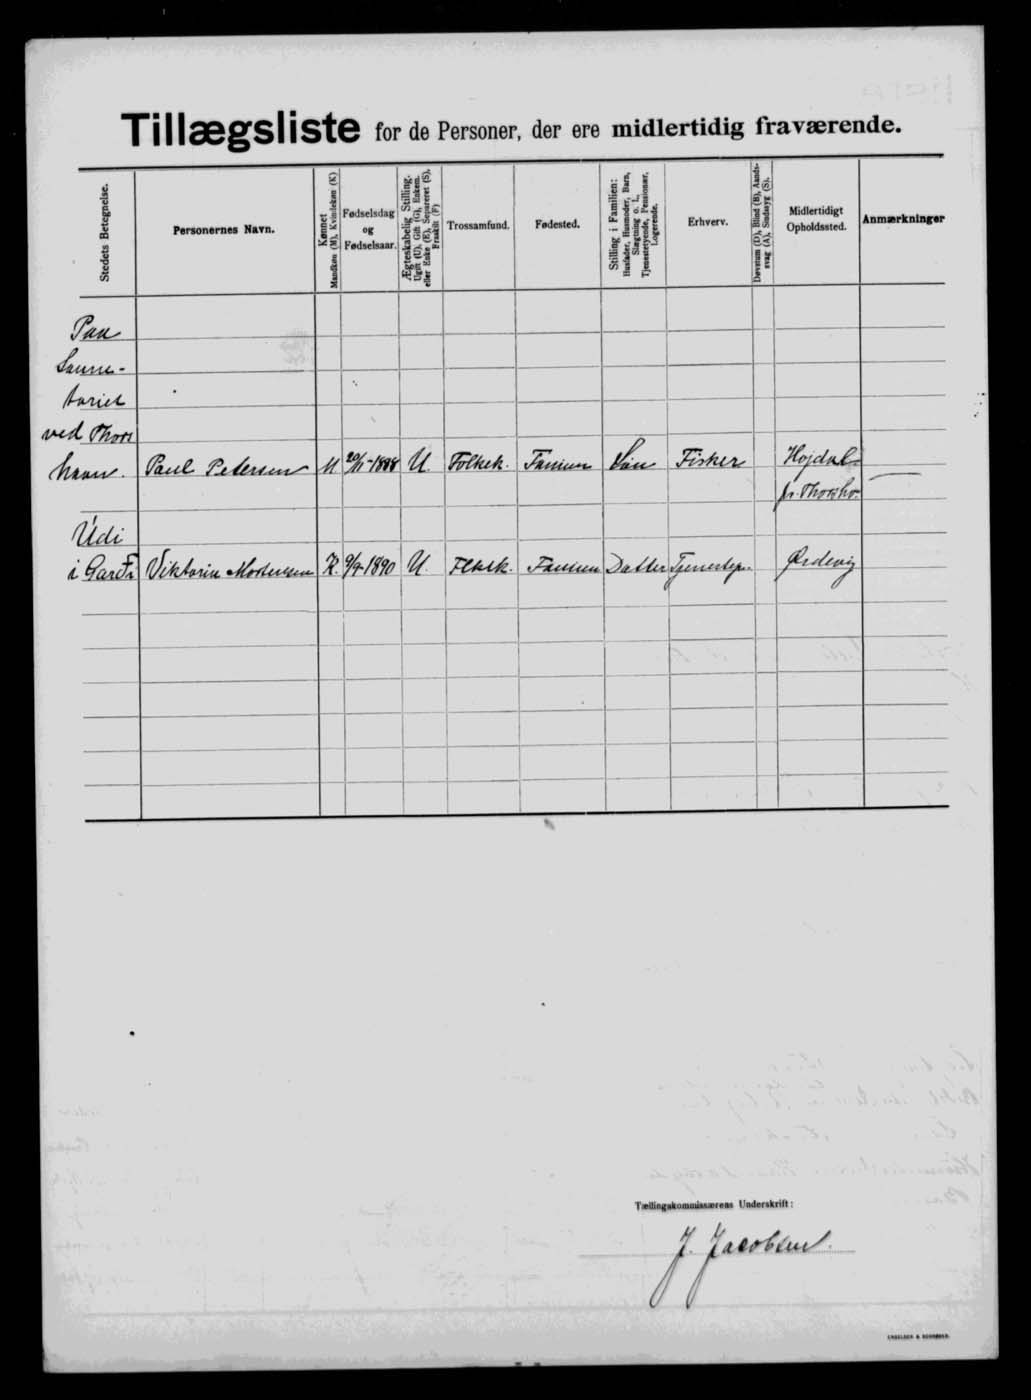 Tillægsliste for de Personer, der ere midlertidig fraværende.
Stedets Betegnelse.
Personernes Navn.
Kønnet
Mandkøn (M), Kvindekøn (K)
Fødselsdag
og
Fødselsaar.
Ægteskabelig Stilling.
Ugift (U), Gift (G), Enkem.
eller Enke (E), Separeret (S),
Fraskilt (F)
Trossamfund.
Fødested.
Stilling i Familien:
Husfader, Husmoder, Barn,
Slægtning o. l.,
Tjenestetyende, Pensionær,
Logerende.
Erhverv.
Døvstum (D), Blind (B), Aands-
svag (A), Sindssyg (S).
Midlertidigt
Opholdssted.
Anmærkninger
Paa
Sanne-
toriet
ved Thors
havn. Paul Petersen M 20/11-1888 U. Folkek. Famien Søn Fisker Hojdal
pr. Thorsho.
Udi
i Viktoria Mortensen K. 9/9-1890 U. Flkek. Famien Datter Tjenestep. Ørdevig
Tællingskommissærens Underskrift:
J. Jacobsen.